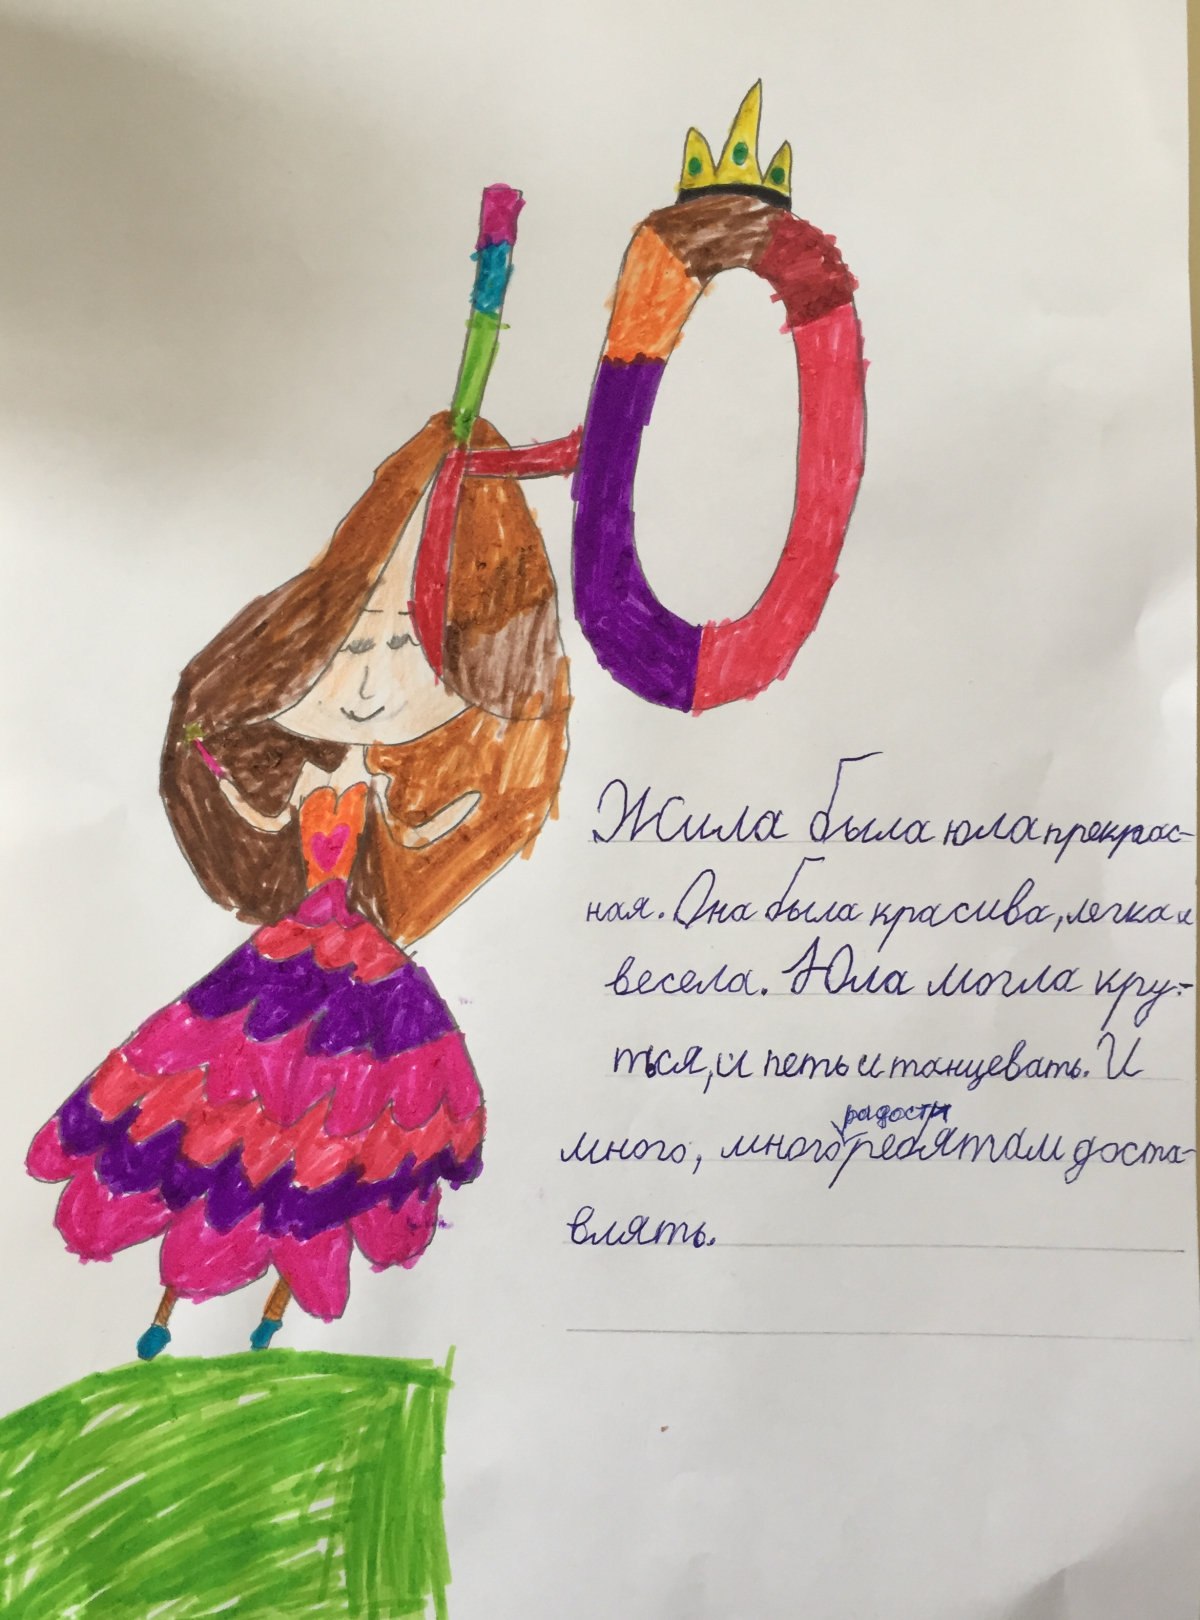 Ю
Жила была юла прекрас-
ная. Она была красива, легка и
весела. Юла могла кру-
ться, и петь и танцевать. И
радости
много, много ребятам доста-
влять.